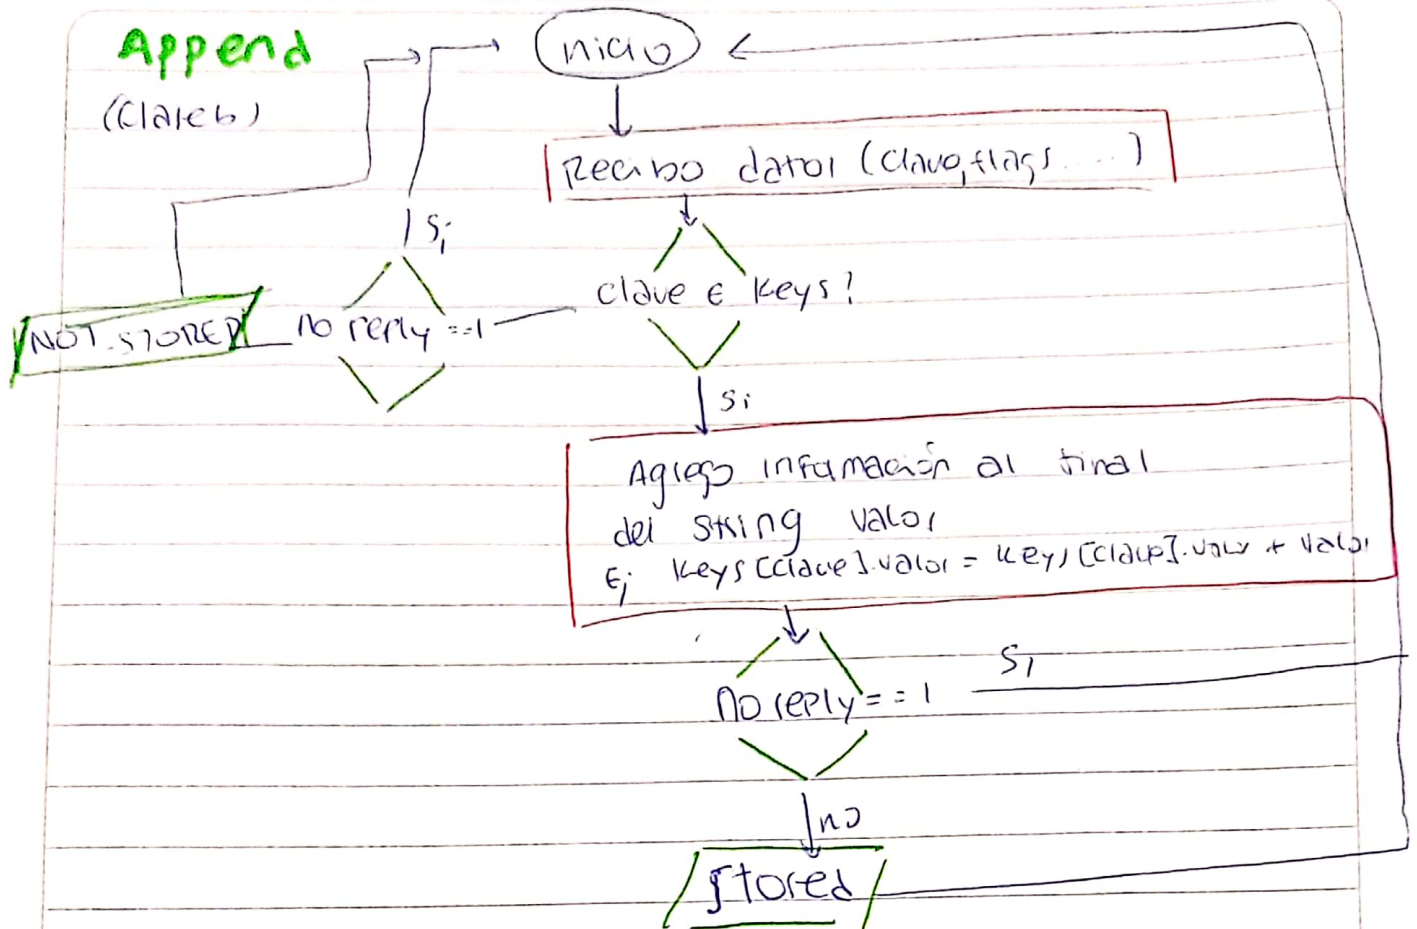 Append
(Claleb)
Inicio
Recibo datos (Clave, flags.....)
Si
clave ∈ keys?
NOT-STORED
no reply ==1
Si
Agrego información al final
del string valor
Ej keys[clave].valor = keys[clave].valor + valor
no reply == 1
Si
no
stored